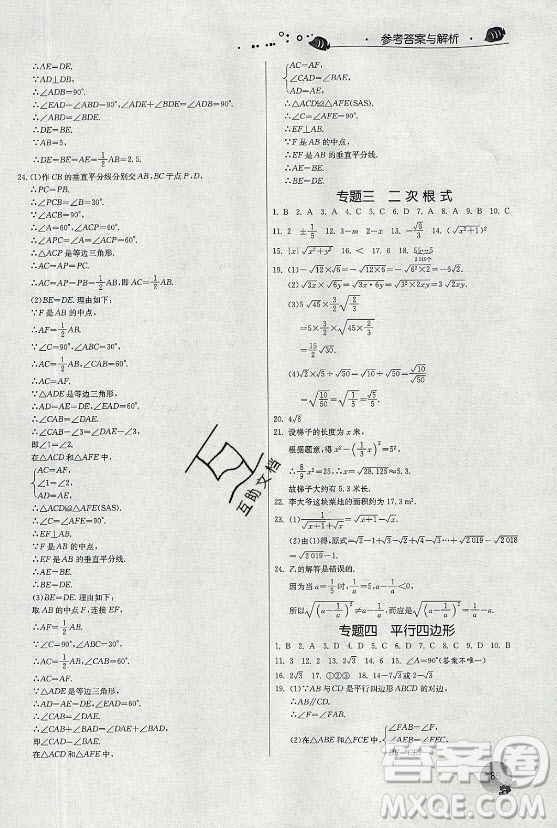 参考答案与解析
∴AE=DE.
∵AD⊥DB,
∴∠ADB=90°.
∴∠EAD+∠ABD=90°,∠ADE+∠BDE=90°.
∴∠ABD=∠BDE.
∴DE=BE.
∵AB=5,
∴DE=BE=AE=1/2AB=2.5.
24.(1)作CB的垂直平分线分别交AB,BC于点P,D,
∴PC=PB.
∴∠PCB=∠B=30°.
∴∠A=60°,∠ACP=60°.
∴∠APC=∠A=∠ACP=60°.
∴△ACP是等边三角形.
∴AC=AP=PC.
∴AC=AP=PB,即AC=1/2AB.
(2)BE=DE.理由如下:
∵F是AB的中点,
∴AF=1/2AB.
∵∠C=90°,∠B=30°,
∴AC=1/2AB,∠CAB=60°.
∴AC=AF.
∵△ADE是等边三角形,
∴AD=AE=DE,∠DAE=60°.
∴∠CAB=∠DAE.
∴∠CAB-∠DAB=∠DAE-∠DAB.
即∠1=∠2.
在△ACD和△AFE中,
AC=AF,
∠1=∠2,
AD=AE,
∴△ACD≌△AFE(SAS).
∴∠AFE=∠C=90°.
∵F是AB的中点,
∴EF是AB的垂直平分线.
∴AE=BE.
∴DE=BE.
(3)BE=DE.理由如下:
取AB的中点F,连接EF,
∴AF=1/2AB.
∵∠C=90°,∠B=30°,
∴AC=1/2AB,∠CAB=60°.
∴AC=AF.
∵△ADE是等边三角形,
∴AD=AE=DE,∠DAE=60°.
∴∠CAB=∠DAE.
∴∠CAB+∠DAB=∠DAE+∠DAB,
即∠CAD=∠BAE.
在△ACD和△AFE中,
AC=AF,
∠CAD=∠BAE,
AD=AE,
∴△ACD≌△AFE(SAS).
∴∠C=∠AFE=90°.
∵F是AB的中点,
∴EF是AB的垂直平分线.
∴AE=BE.
∴DE=BE.
专题三 二次根式
1. B 2. A 3. A 4. C 5. C 6. D 7. A 8. D 9. B 10. C
11. 2 ±1/5 12. 3-m 2-x 13. -√5/5 14. (√(x²+1))
15. |x|√(x²+y²) 16. < 17. 6 18.
19. (1)-√12×√5=-√(12×5)=-√60.
(2)√3x×√6y=√(3x·6y)=3√2xy.
(3)5√45×3/2√(2/3)
=5×3/2√(45×2/3)
=15/2√30.
(4)√2÷√5÷√50=√2×1/√5×1/√50
=√(2/(5×50))=√(1/5³)=√5/25.
20. 4√6
21. 设梯子的长度为x米,
根据题意,得x²-(1/3x)²=5²,
∴8/9x²=25.∴x=√28.125≈5.3.
故梯子大约有5.3米长.
22. 李大爷这块菜地的面积约为17.3 m².
23. (1)1/(√(x+1)+√x)=√(x+1)-√x.
(2)由(1)得,原式=√2-1+√3-√2+…+√2 019-√2 018
=√2 019-1.
24. 乙的解答是错误的.
因为当a=1/5时,1/a=5,a-1/a<0.
所以√(a-1/a)²≠a-1/a,而应是√(a-1/a)²=1/a-a.
专题四 平行四边形
1. B 2. D 3. A 4. C 5. C 6. D 7. C 8. B 9. B 10. D
11. 3 12. 2√3 13. 26 14. 4 15. ∠A=90°(答案不唯一)
16. 2√3 17. ①②③ 18. 14-7√3或√3
19. (1)∵AB与CD是平行四边形ABCD的对边,
∴AB∥CD.
∴∠F=∠FAB.
(2)在△ABE和△FCE中,
∠FAB=∠F,
∠AEB=∠FEC,
BE=CE,
互助文档
答案圈
MXQE.COM